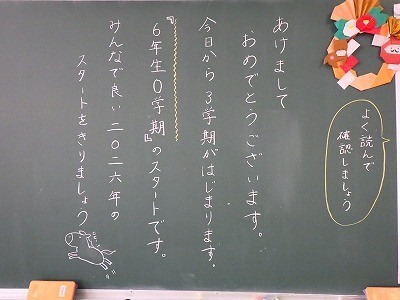 よく読んで
確認しましょう
あけまして
おめでとうございます。
今日から3学期がはじまります。
『6年生0学期』のスタートです。
みんなで良い二〇二六年の
スタートをきりましょう